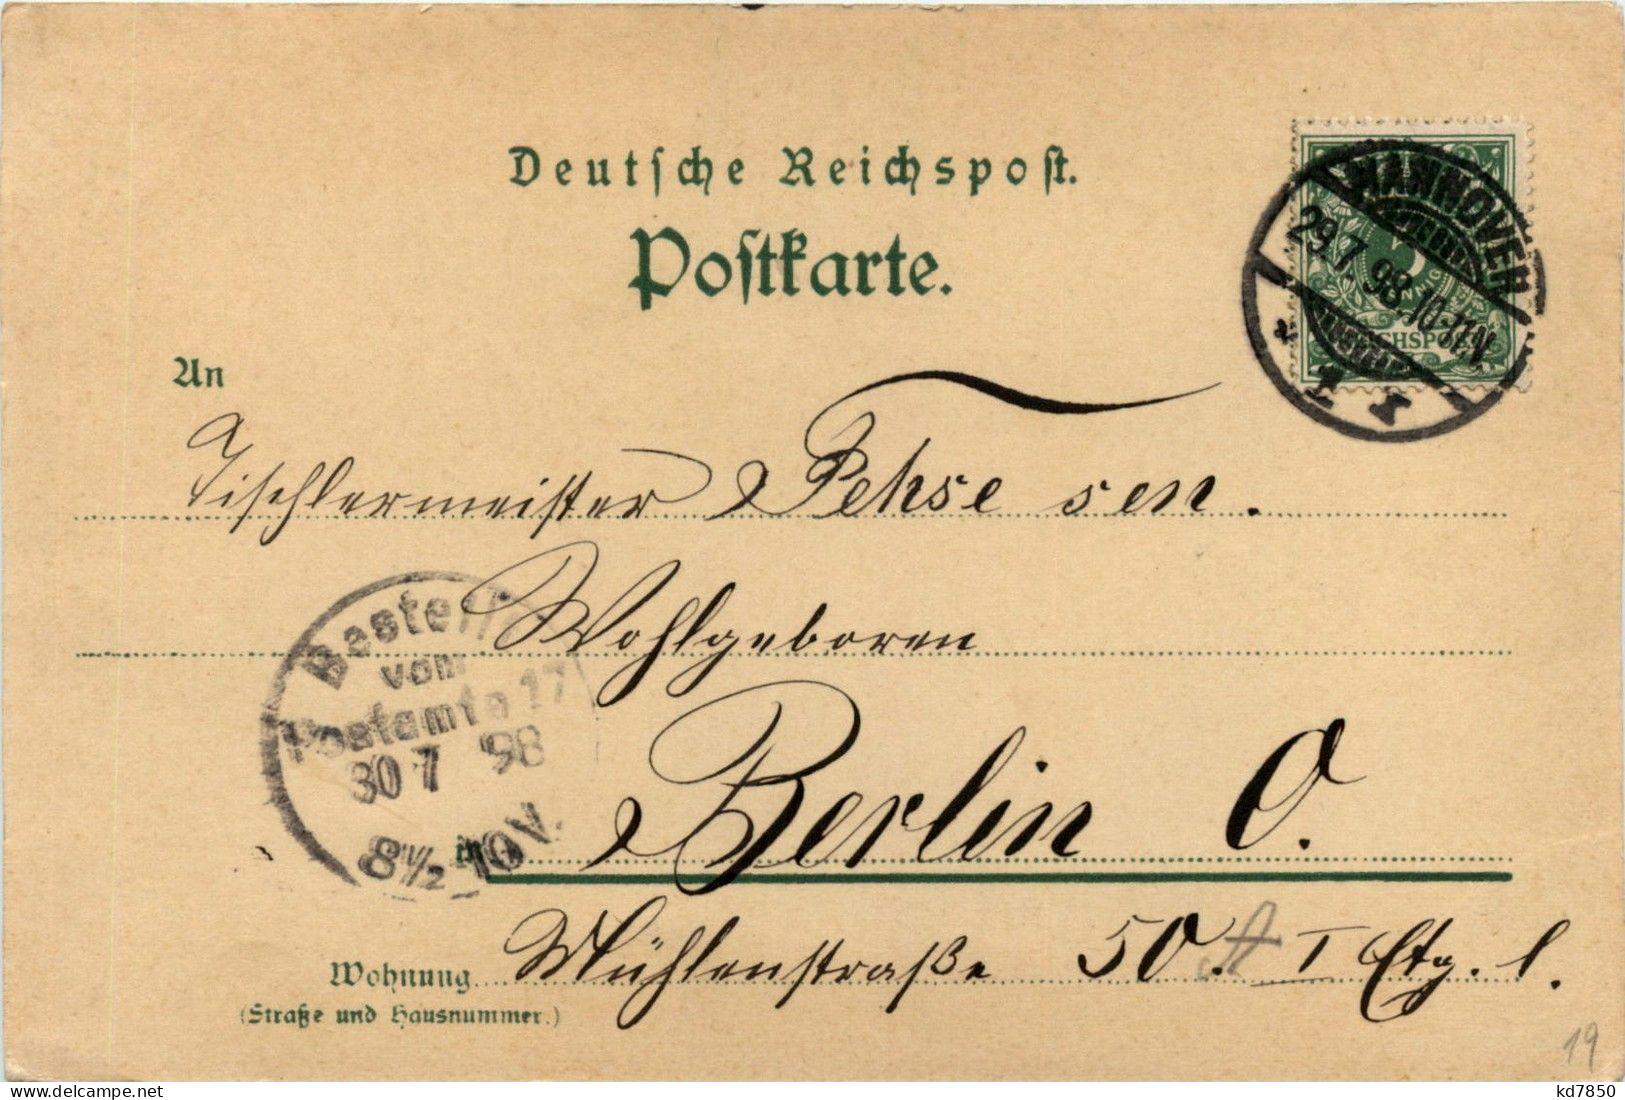 Deutsche Reichspost.
Postkarte.
HANNOVER
29.7.98.10-11.V.
1 1
REICHSPOST
An
Tischlermeister Fehse sen.
Wohlgeboren
Bestellt
vom
Postamte 17
30 7 98
8 1/2 - 10 V.
in Berlin O.
Wohnung Mühlenstraße 50. A I Etg. l.
(Straße und Hausnummer.)
19
kd7850